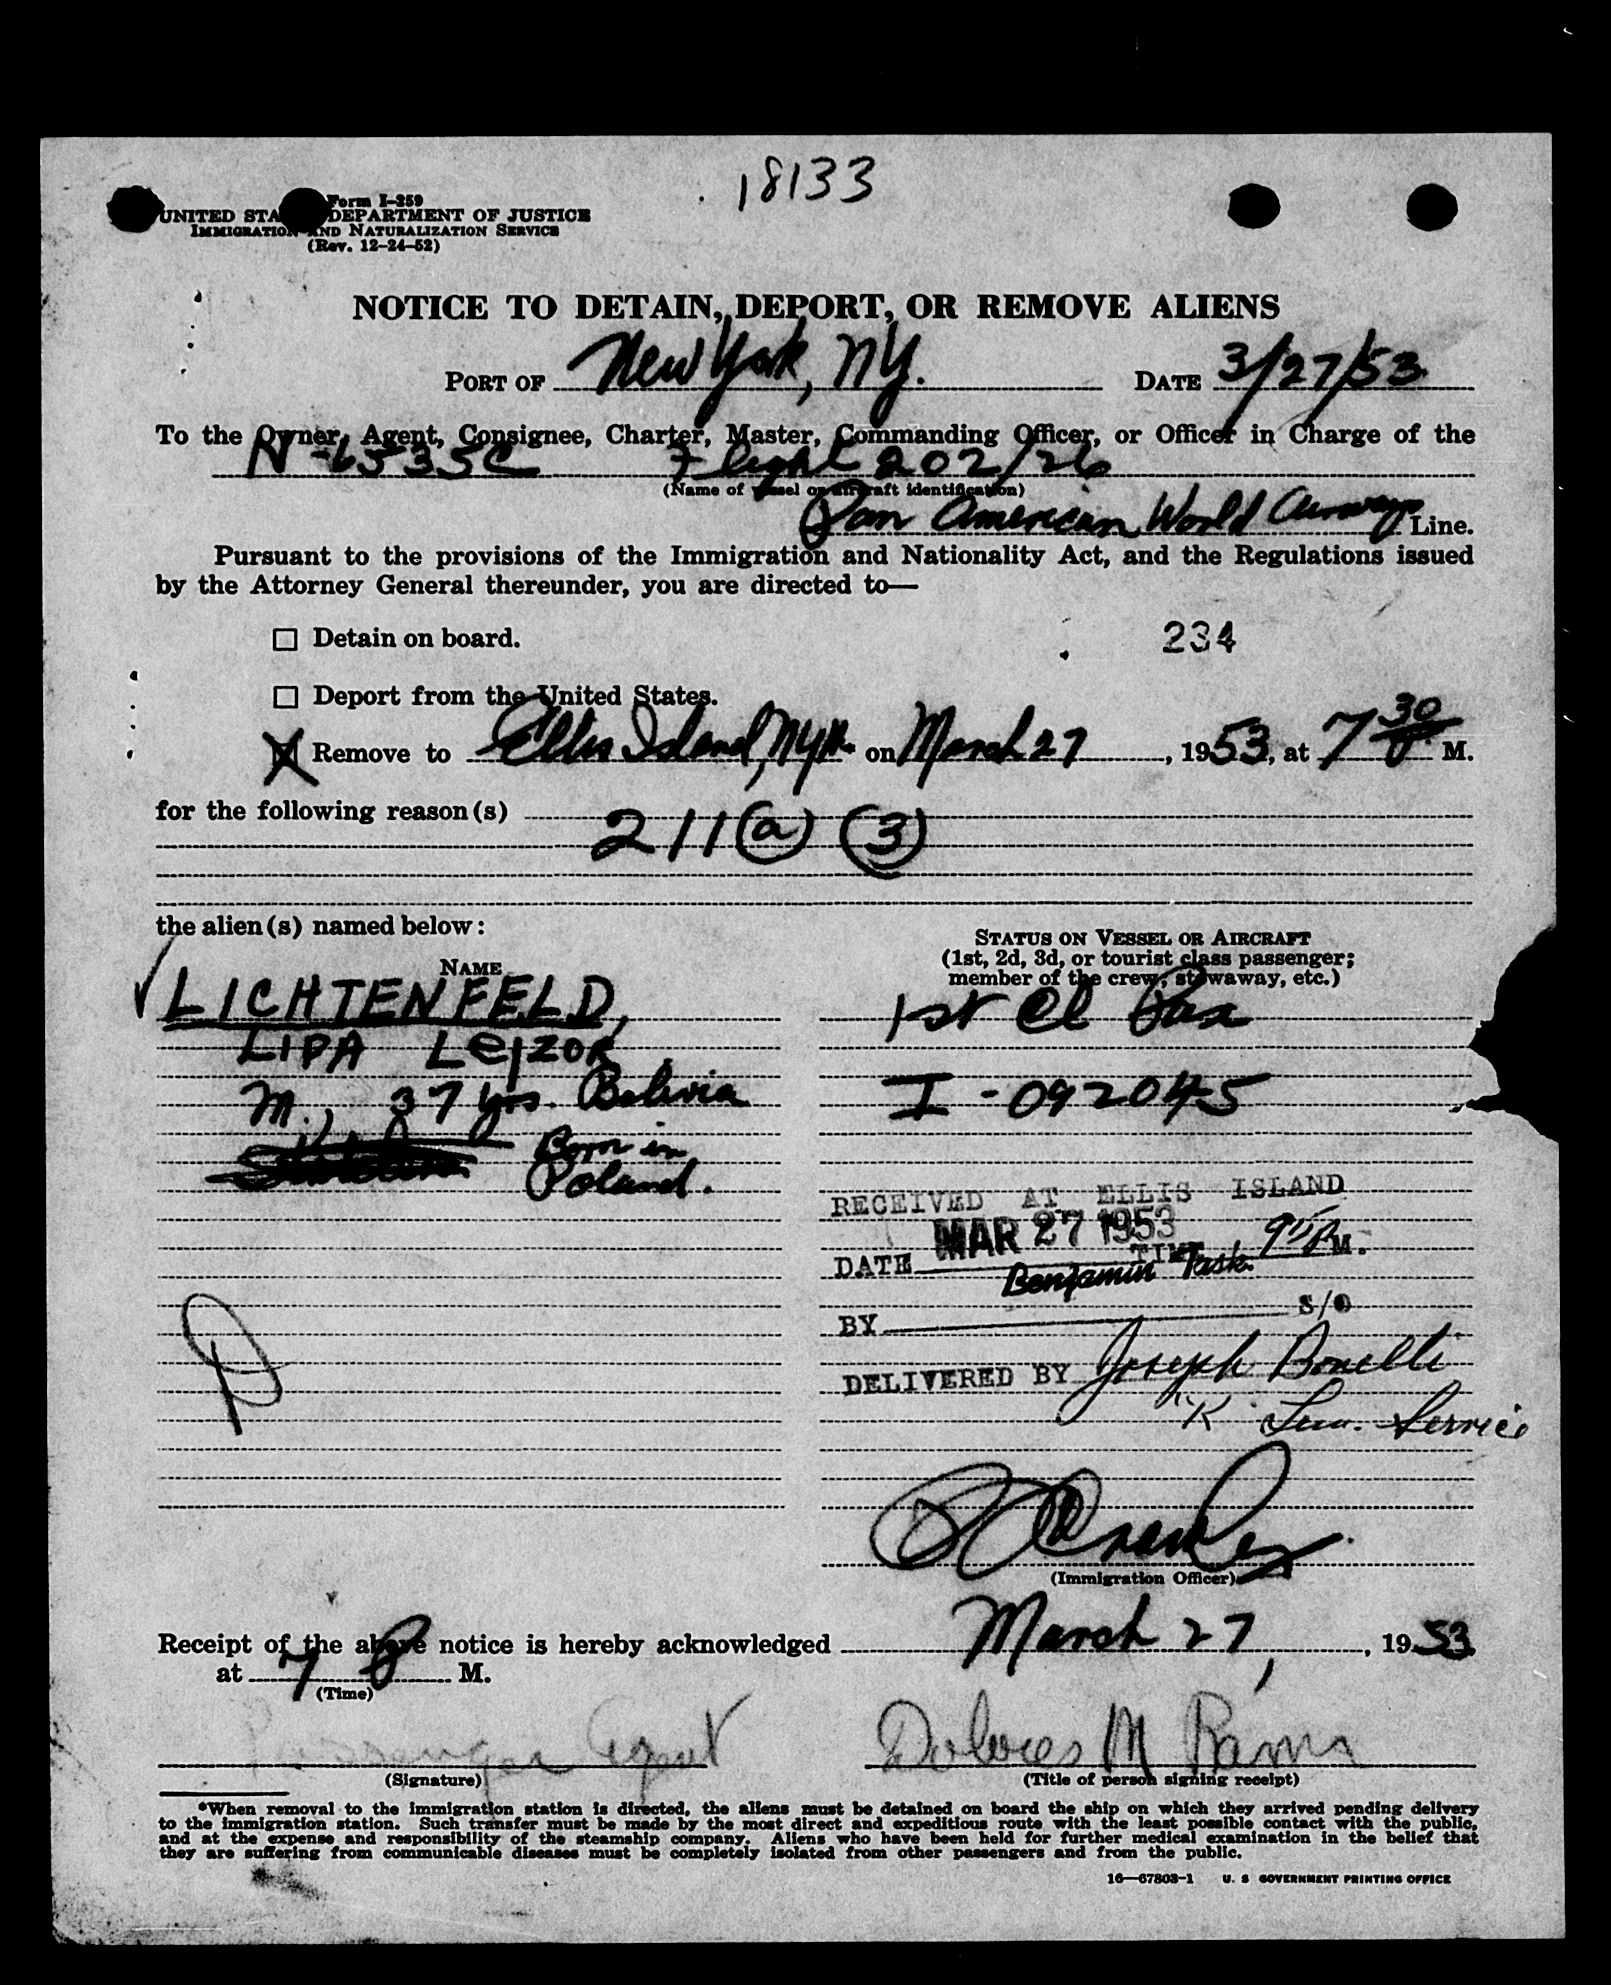 18133
Form I-259
UNITED STA DEPARTMENT OF JUSTICE
IMMIGRATION AND NATURALIZATION SERVICE
(Rev. 12-24-52)
NOTICE TO DETAIN, DEPORT, OR REMOVE ALIENS
PORT OF New York, NY. DATE 3/27/53
To the Owner, Agent, Consignee, Charter, Master, Commanding Officer, or Officer in Charge of the
N-6535C Flight 202/26
(Name of vessel or aircraft identification)
Pan American World Airways Line.
Pursuant to the provisions of the Immigration and Nationality Act, and the Regulations issued
by the Attorney General thereunder, you are directed to—
☐ Detain on board.
234
☐ Deport from the United States.
☒ Remove to Ellis Island, NYH. on March 27, 1953, at 7 30 P. M.
for the following reason(s)
211(a) (3)
the alien(s) named below:
NAME
STATUS ON VESSEL OR AIRCRAFT
(1st, 2d, 3d, or tourist class passenger;
member of the crew, stowaway, etc.)
✓ LICHTENFELD, 1st Cl Pax
LIPA LEJZOR
M., 37 yrs. Bolivia I-092045
Born in
Poland.
RECEIVED AT ELLIS ISLAND
MAR 27 1953
DATE TIME 9 15 P M.
Benjamin Task
BY S/O
DELIVERED BY Joseph Bonelli
"K" Service
(Immigration Officer)
Receipt of the above notice is hereby acknowledged March 27, 1953
at 7 P M.
(Time)
Passenger Agent Dolores M
(Signature) (Title of person signing receipt)
*When removal to the immigration station is directed, the aliens must be detained on board the ship on which they arrived pending delivery
to the immigration station. Such transfer must be made by the most direct and expeditious route with the least possible contact with the public,
and at the expense and responsibility of the steamship company. Aliens who have been held for further medical examination in the belief that
they are suffering from communicable diseases must be completely isolated from other passengers and from the public.
16—67803-1 U. S GOVERNMENT PRINTING OFFICE